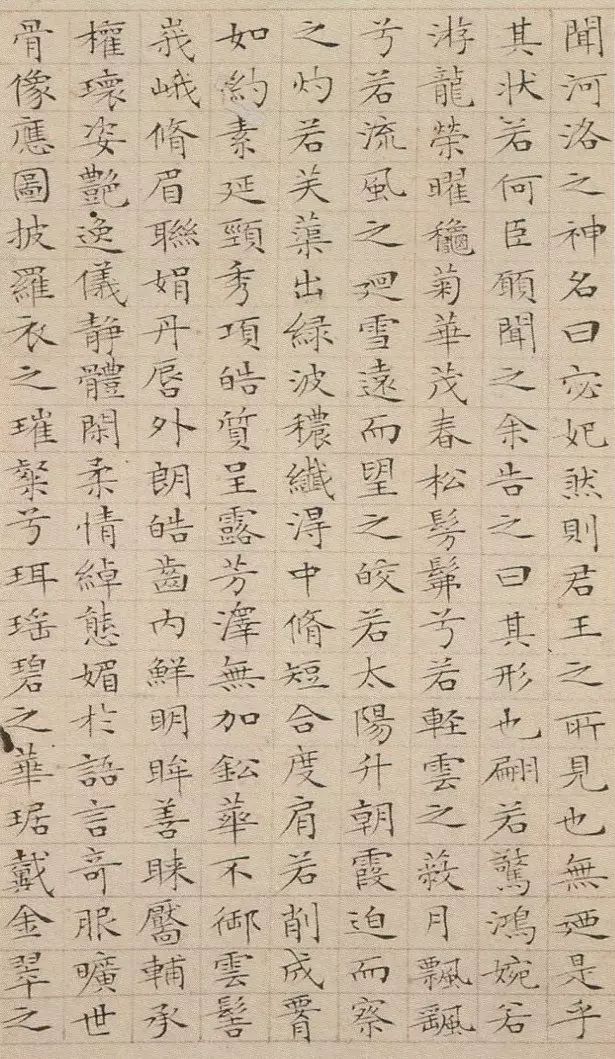 聞河洛之神名曰宓妃然則君王之所見也無廼是乎
其狀若何臣願聞之余告之曰其形也翩若驚鴻婉若
游龍榮曜穐菊華茂春松髣髴兮若軽雲之蔽月飄飖
兮若流風之廻雪遠而望之皎若太陽升朝霞迫而察
之灼若芙蕖出緑波穠纖得中脩短合度肩若削成腰
如約素延頸秀項皓質呈露芳澤無加鈆華不御雲髻
峩峨脩眉聯娟丹唇外朗皓齒内鮮明眸善睞靨輔承
權瓌姿艷逸儀静體閑柔情綽態媚於語言奇服曠世
骨像應圖披羅衣之璀粲兮珥瑶碧之華琚戴金翠之